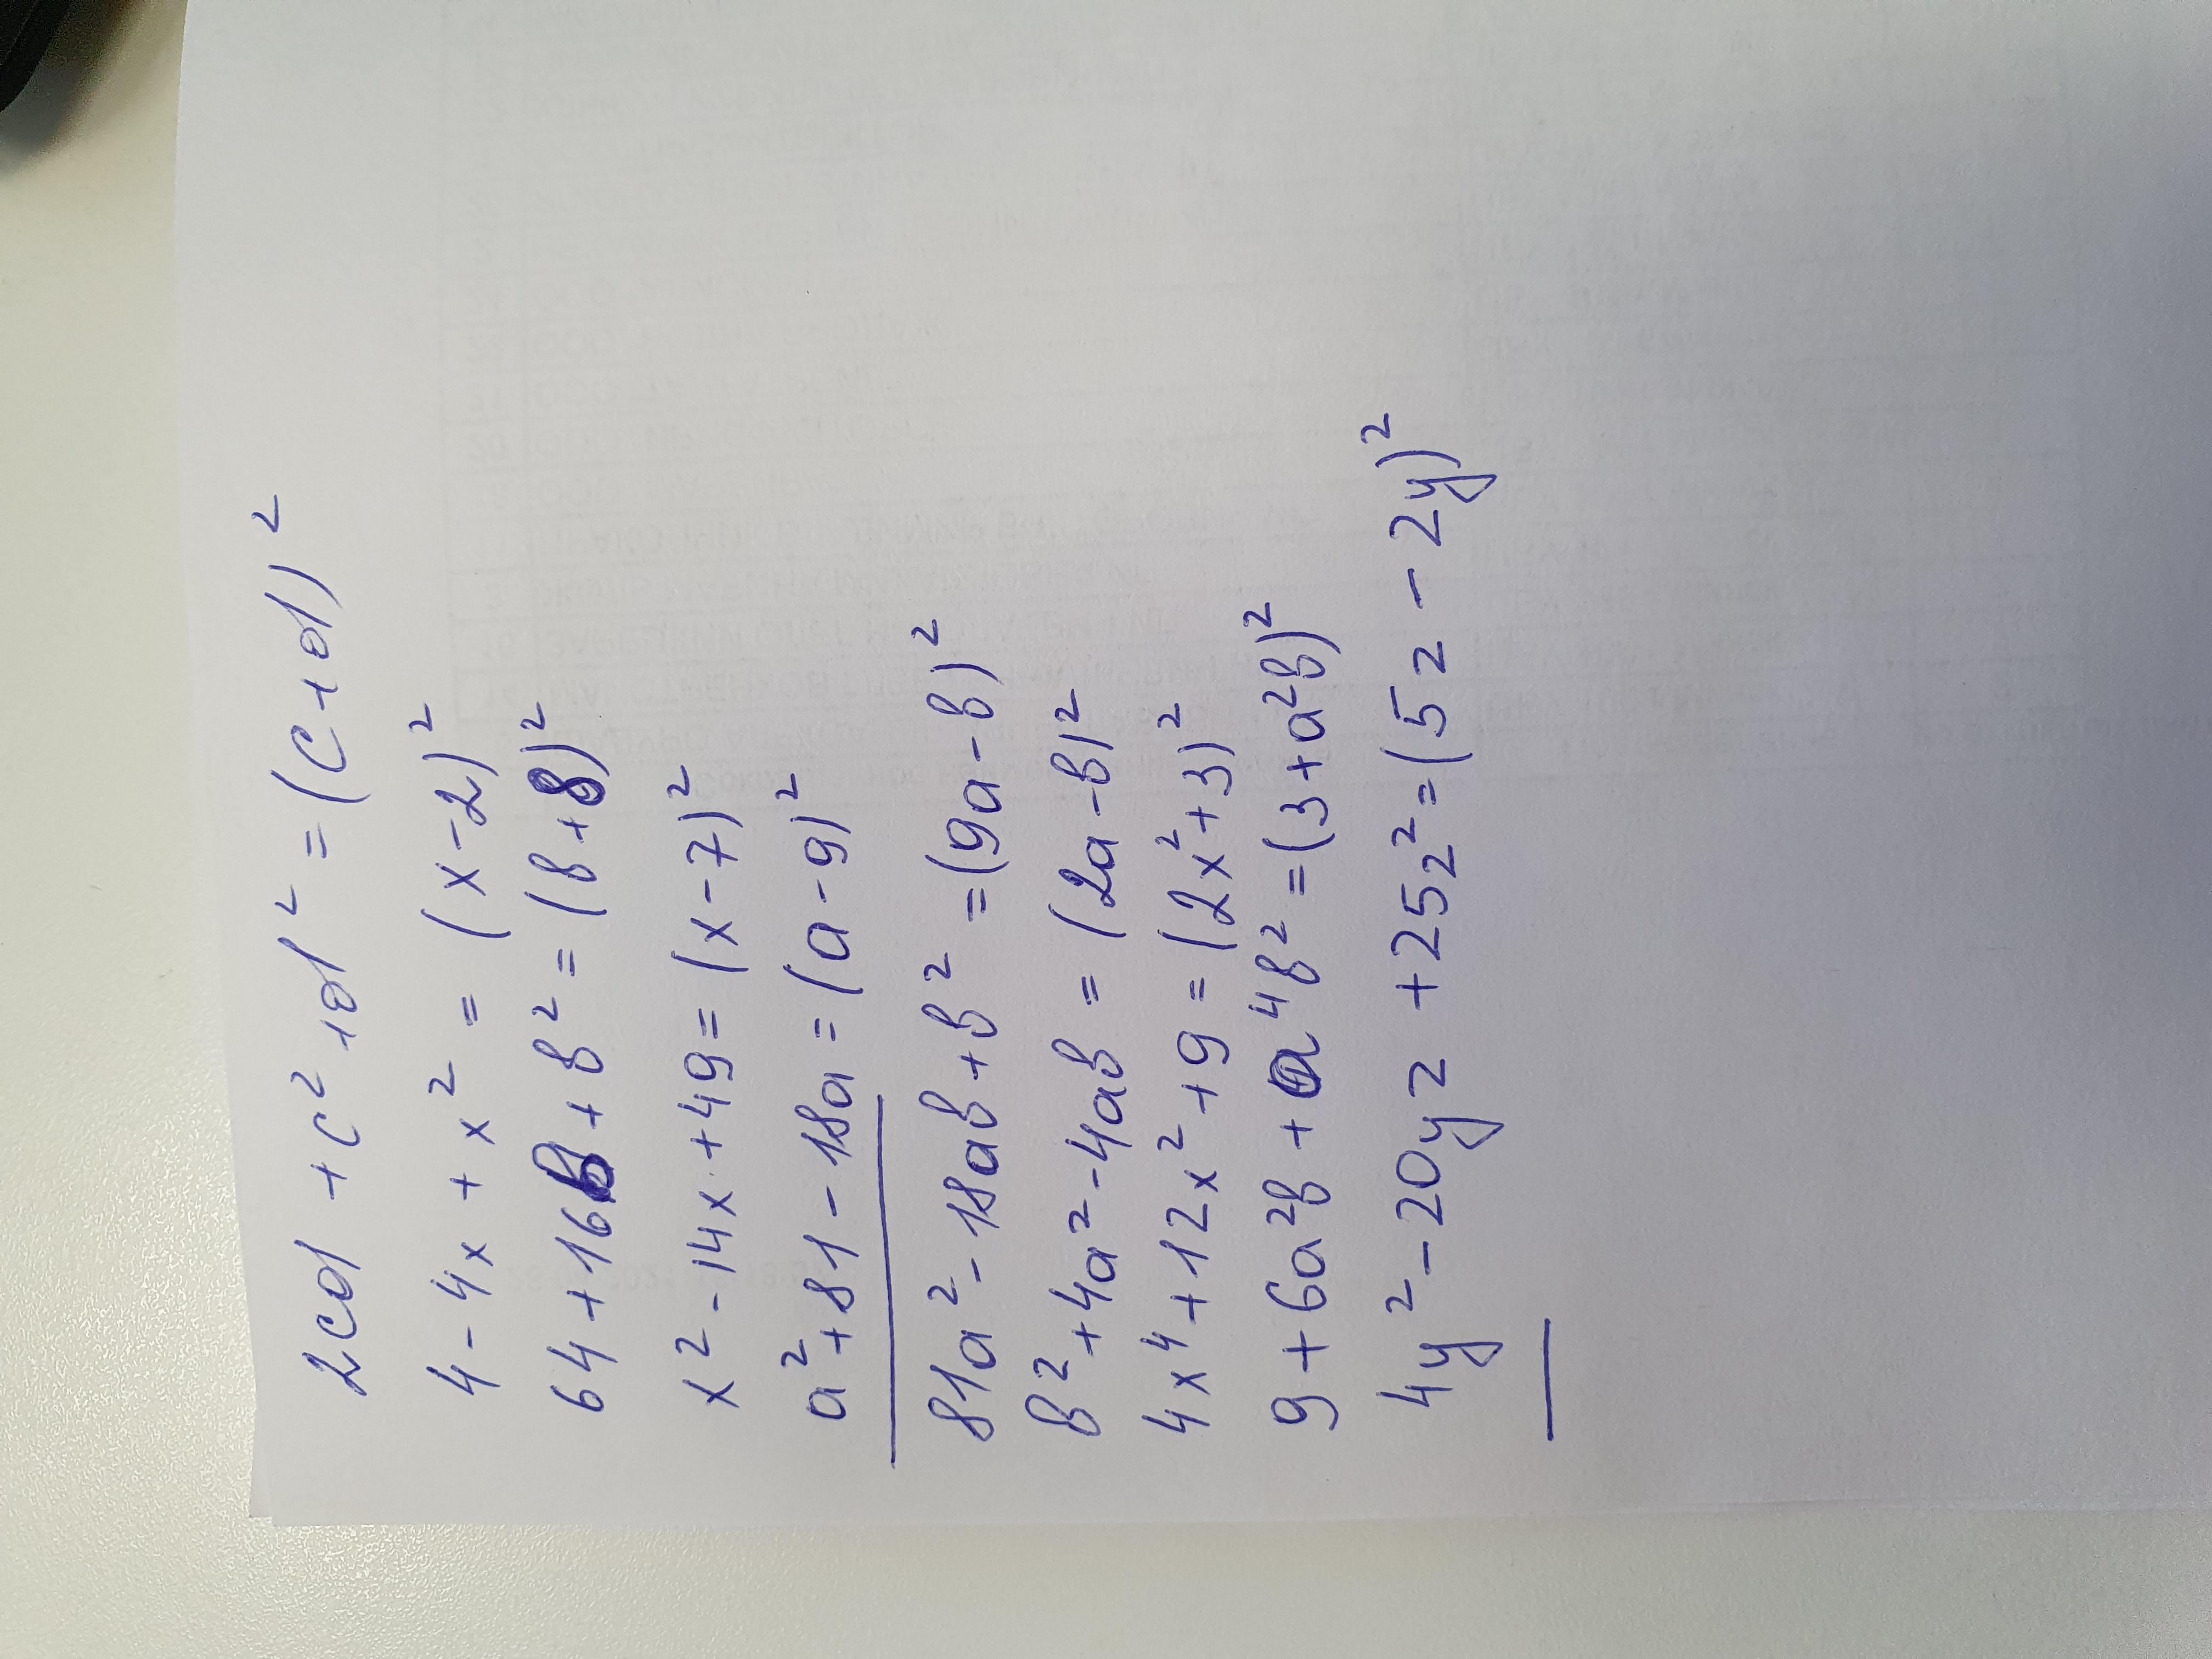 2cd + c² + d² = (c + d)²
4 - 4x + x² = (x - 2)²
64 + 16b + b² = (b + 8)²
x² - 14x + 49 = (x - 7)²
a² + 81 - 18a = (a - 9)²
81a² - 18ab + b² = (9a - b)²
b² + 4a² - 4ab = (2a - b)²
4x⁴ + 12x² + 9 = (2x² + 3)²
9 + 6a²b + a⁴b² = (3 + a²b)²
4y² - 20yz + 25z² = (5z - 2y)²